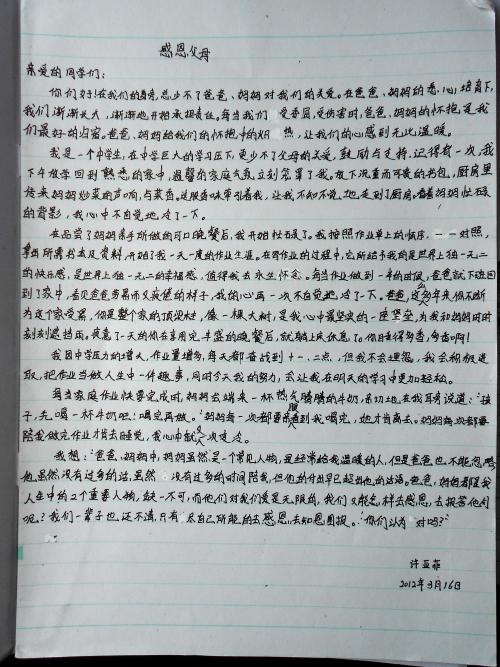 感恩父母
亲爱的同学们：
你们好！在我们的身旁，总少不了爸爸、妈妈对我们的关爱。在爸爸、妈妈的悉心培育下，
我们渐渐长大，渐渐地开始承担责任。每当我们受委屈、受伤害时，爸爸、妈妈的怀抱是我
们最好的归宿。爸爸、妈妈给我们的怀抱中的炽热，让我们的心感到无比温暖。
我是一个中学生，在中学巨大的学习压下，更少不了父母的关爱、鼓励与支持。记得有一次，我
下午放学回到熟悉的家中，温馨的家庭气氛立刻笼罩了我。放下沉重而可爱的书包，厨房里
传来妈妈炒菜的声响，与菜香。这股香味牵引着我，让我不知不觉地走到了厨房。看着妈妈忙碌
的背影，我心中不自觉地冷了一下。
在品尝了妈妈亲手所做的可口晚餐后，我开始忙碌了。我按照作业单上的顺序，一一对照，
拿出所需书本及资料，开始了我一天一度的作业生涯。在写作业的过程中，它所给予我的是世界上独一无二
的快乐感，是世界上独一无二的幸福感，值得我去永生怀念。每当作业做到一半的时候，爸爸就下班回
到了家中，看见爸爸劳累而又疲惫的样子，我的心再一次不自觉地冷了一下。爸爸，这么多年来你不断
为这个家受累，你是整个家的顶梁柱，像一棵大树，是我心中最坚实的一座堡垒，为我和妈妈时时
刻刻遮挡雨。疲惫了一天的你在享用完丰盛的晚餐后，就躺上床休息了。你睡得多香，多香啊！
我因中学压力的增大，作业量增多，每天都奋战到十一、二点，但我不会埋怨，我会积极进
取，把作业当做人生中一件趣事，同时今天我的努力，会让我在明天的学习中更加轻松。
每当家庭作业快要完成时，妈妈会端来一杯热气腾腾的牛奶，亲切地在我耳旁说道：“孩
子，先喝一杯牛奶吧！喝完再做。”妈妈每一次都要看到我喝完，她才肯离去。妈妈每次都要
陪我做完作业才肯去睡觉，我心中就又一次凌凌。
我想：“爸爸、妈妈中，妈妈虽然是一个常见人物，是经常给我温暖的人，但是爸爸也不能忽略，
他虽然没有过多的话，虽然没有过多的时间陪我，但他的付出早已超出他的话语。爸爸，妈妈都是我
人生中的2个重要人物，缺一不可，而他们对我们的爱是无限的，我们又能怎样去感恩，去报答他们
呢？我们一辈子也还不清，只有尽自己所能的去感恩，去知恩图报。”你们认为对吗？”
许亚菲
2012年3月16日